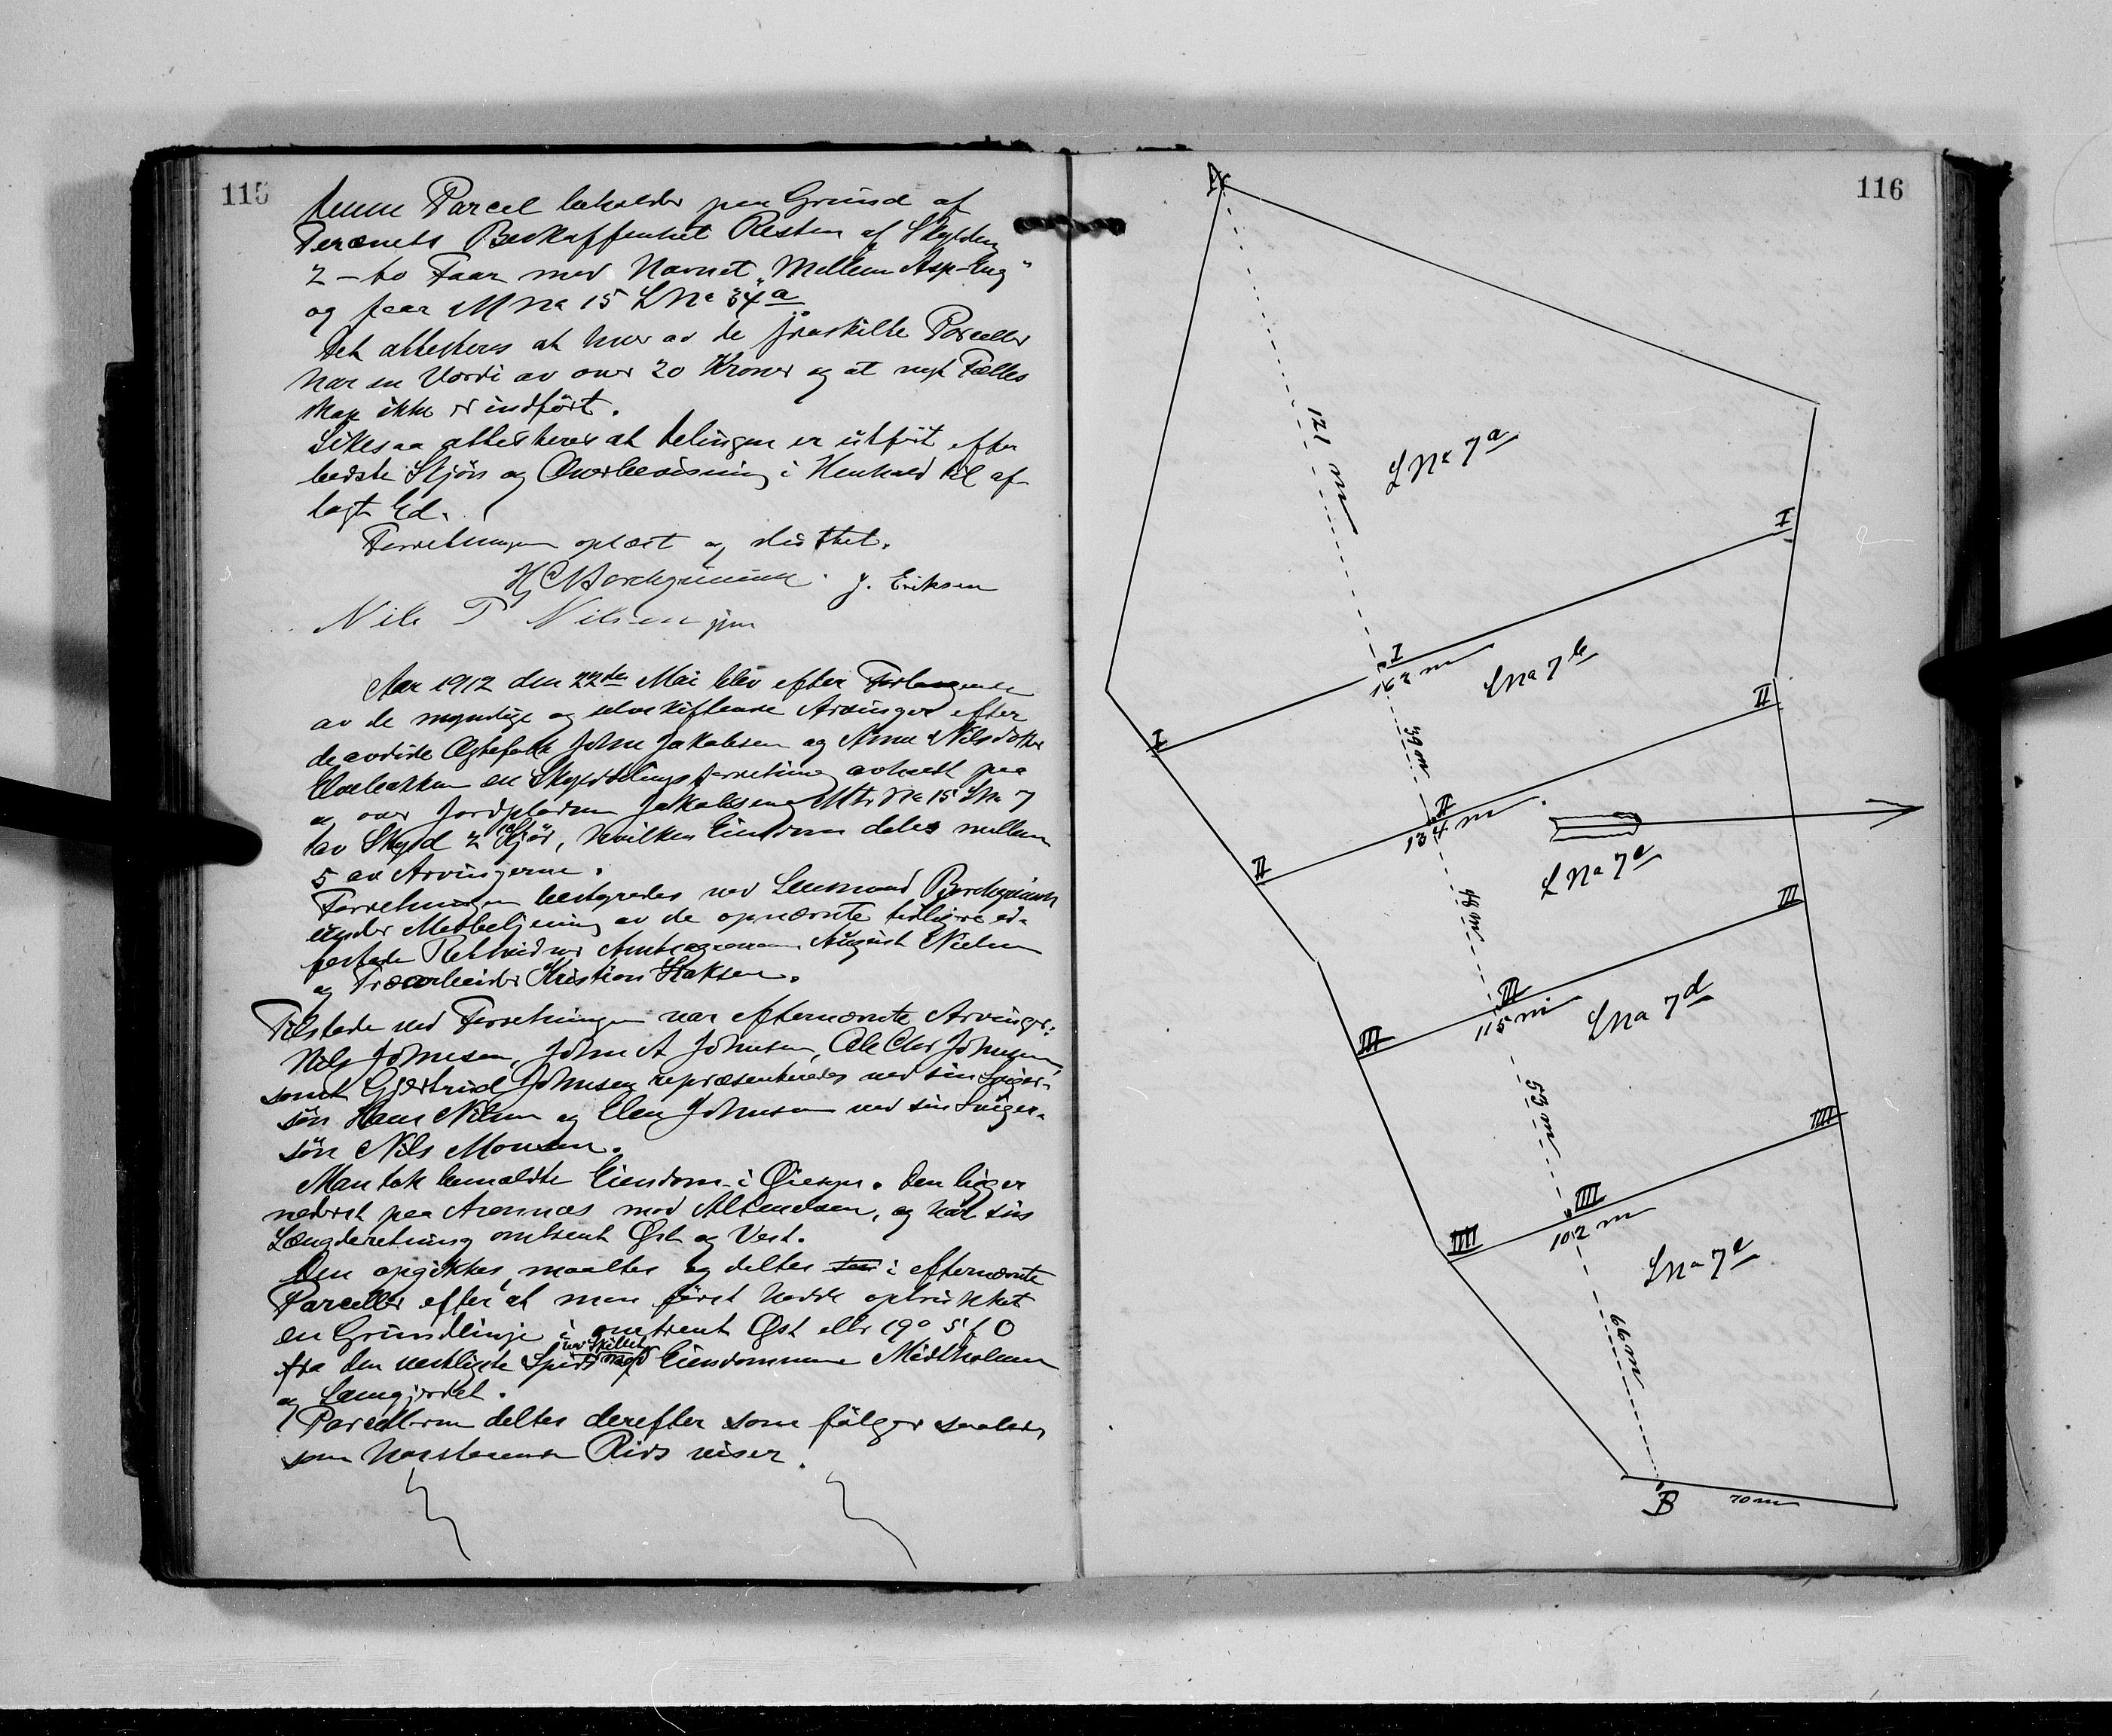 115
denne Parcel beholder paa Grund af
Terænets Beskaffenhet Resten af Skylden
2 - to Øre med Navnet "Mellem Asp-Eng"
og faar M No 15 L No 34 a
Det attesteres at hver av de fraskilte Parceller
har en Værdi av over 20 Kroner og at nyt Fælles
skap ikke er indført.
Likesaa attesteres at Delingen er utført efter
bedste Skjøn og Overbevisning i Henhold til af
lagt Ed.
Forretningen oplæst og sluttet.
J. Eriksen
Nils P Nilsen
Aar 1912 den 22den Mai blev efter Forlangende
av de myndige og selvskiftende Arvinger efter
de avdøde Ægtefolk John Jakobsen og Anne Nilsdatter
Elvebakken en Skylddelingsforretning avholdt paa
og over Jordpladsen Mtr No 15 L No 7
av Skyld 2, hvilken Eiendom deles mellem
5 av Arvingerne.
Forretningen bestyredes ved Lensmand Borchgrevink
under Medbetjening av de opnævnte tidligere ed-
fæstede Retsvidner August Nielsen
og Træarbeider Kristian Isaksen.
Tilstede ved Forretningen var efternævnte Arvinger:
Nils Johnsen, John A Johnsen, Ole Chr Johnsen
samt Gjertrud Johnsen repræsenteredes ved sin Sviger-
søn Hans Nilsen og Elen Johnsen ved sin Sviger-
søn Nils Monsen.
Man tok bemeldte Eiendom i Øiesyn. Den ligger
nederst paa Aronnes mod Altenelven, og har sin
Længderetning omtrent Øst og Vest.
Den opgikkes, maaltes og deltes i efternævnte
Parceller efter at man først hadde optrukket
en Grundlinje i omtrent Øst eller 19° S t O
fra den vestligste Spids ved Skillet mod Eiendommene Midtholmen
og Langjordet.
Parcellerne deltes derefter som følger saaledes
som hosstaaende Rids viser.
116
A
121 m
L No 7 a
I
I
162 m
L No 7 b
I
II
39 m
II
134 m
L No 7 c
II
III
44 m
III
115 m
L No 7 d
III
IIII
53 m
IIII
102 m
IIII
L No 7 e
66 m
B
70 m